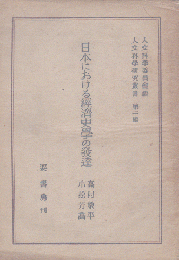 人文科學委員會編
人文科學研究叢書 第二輯
日本における經濟史學の發達
高村象平
小松芳喬